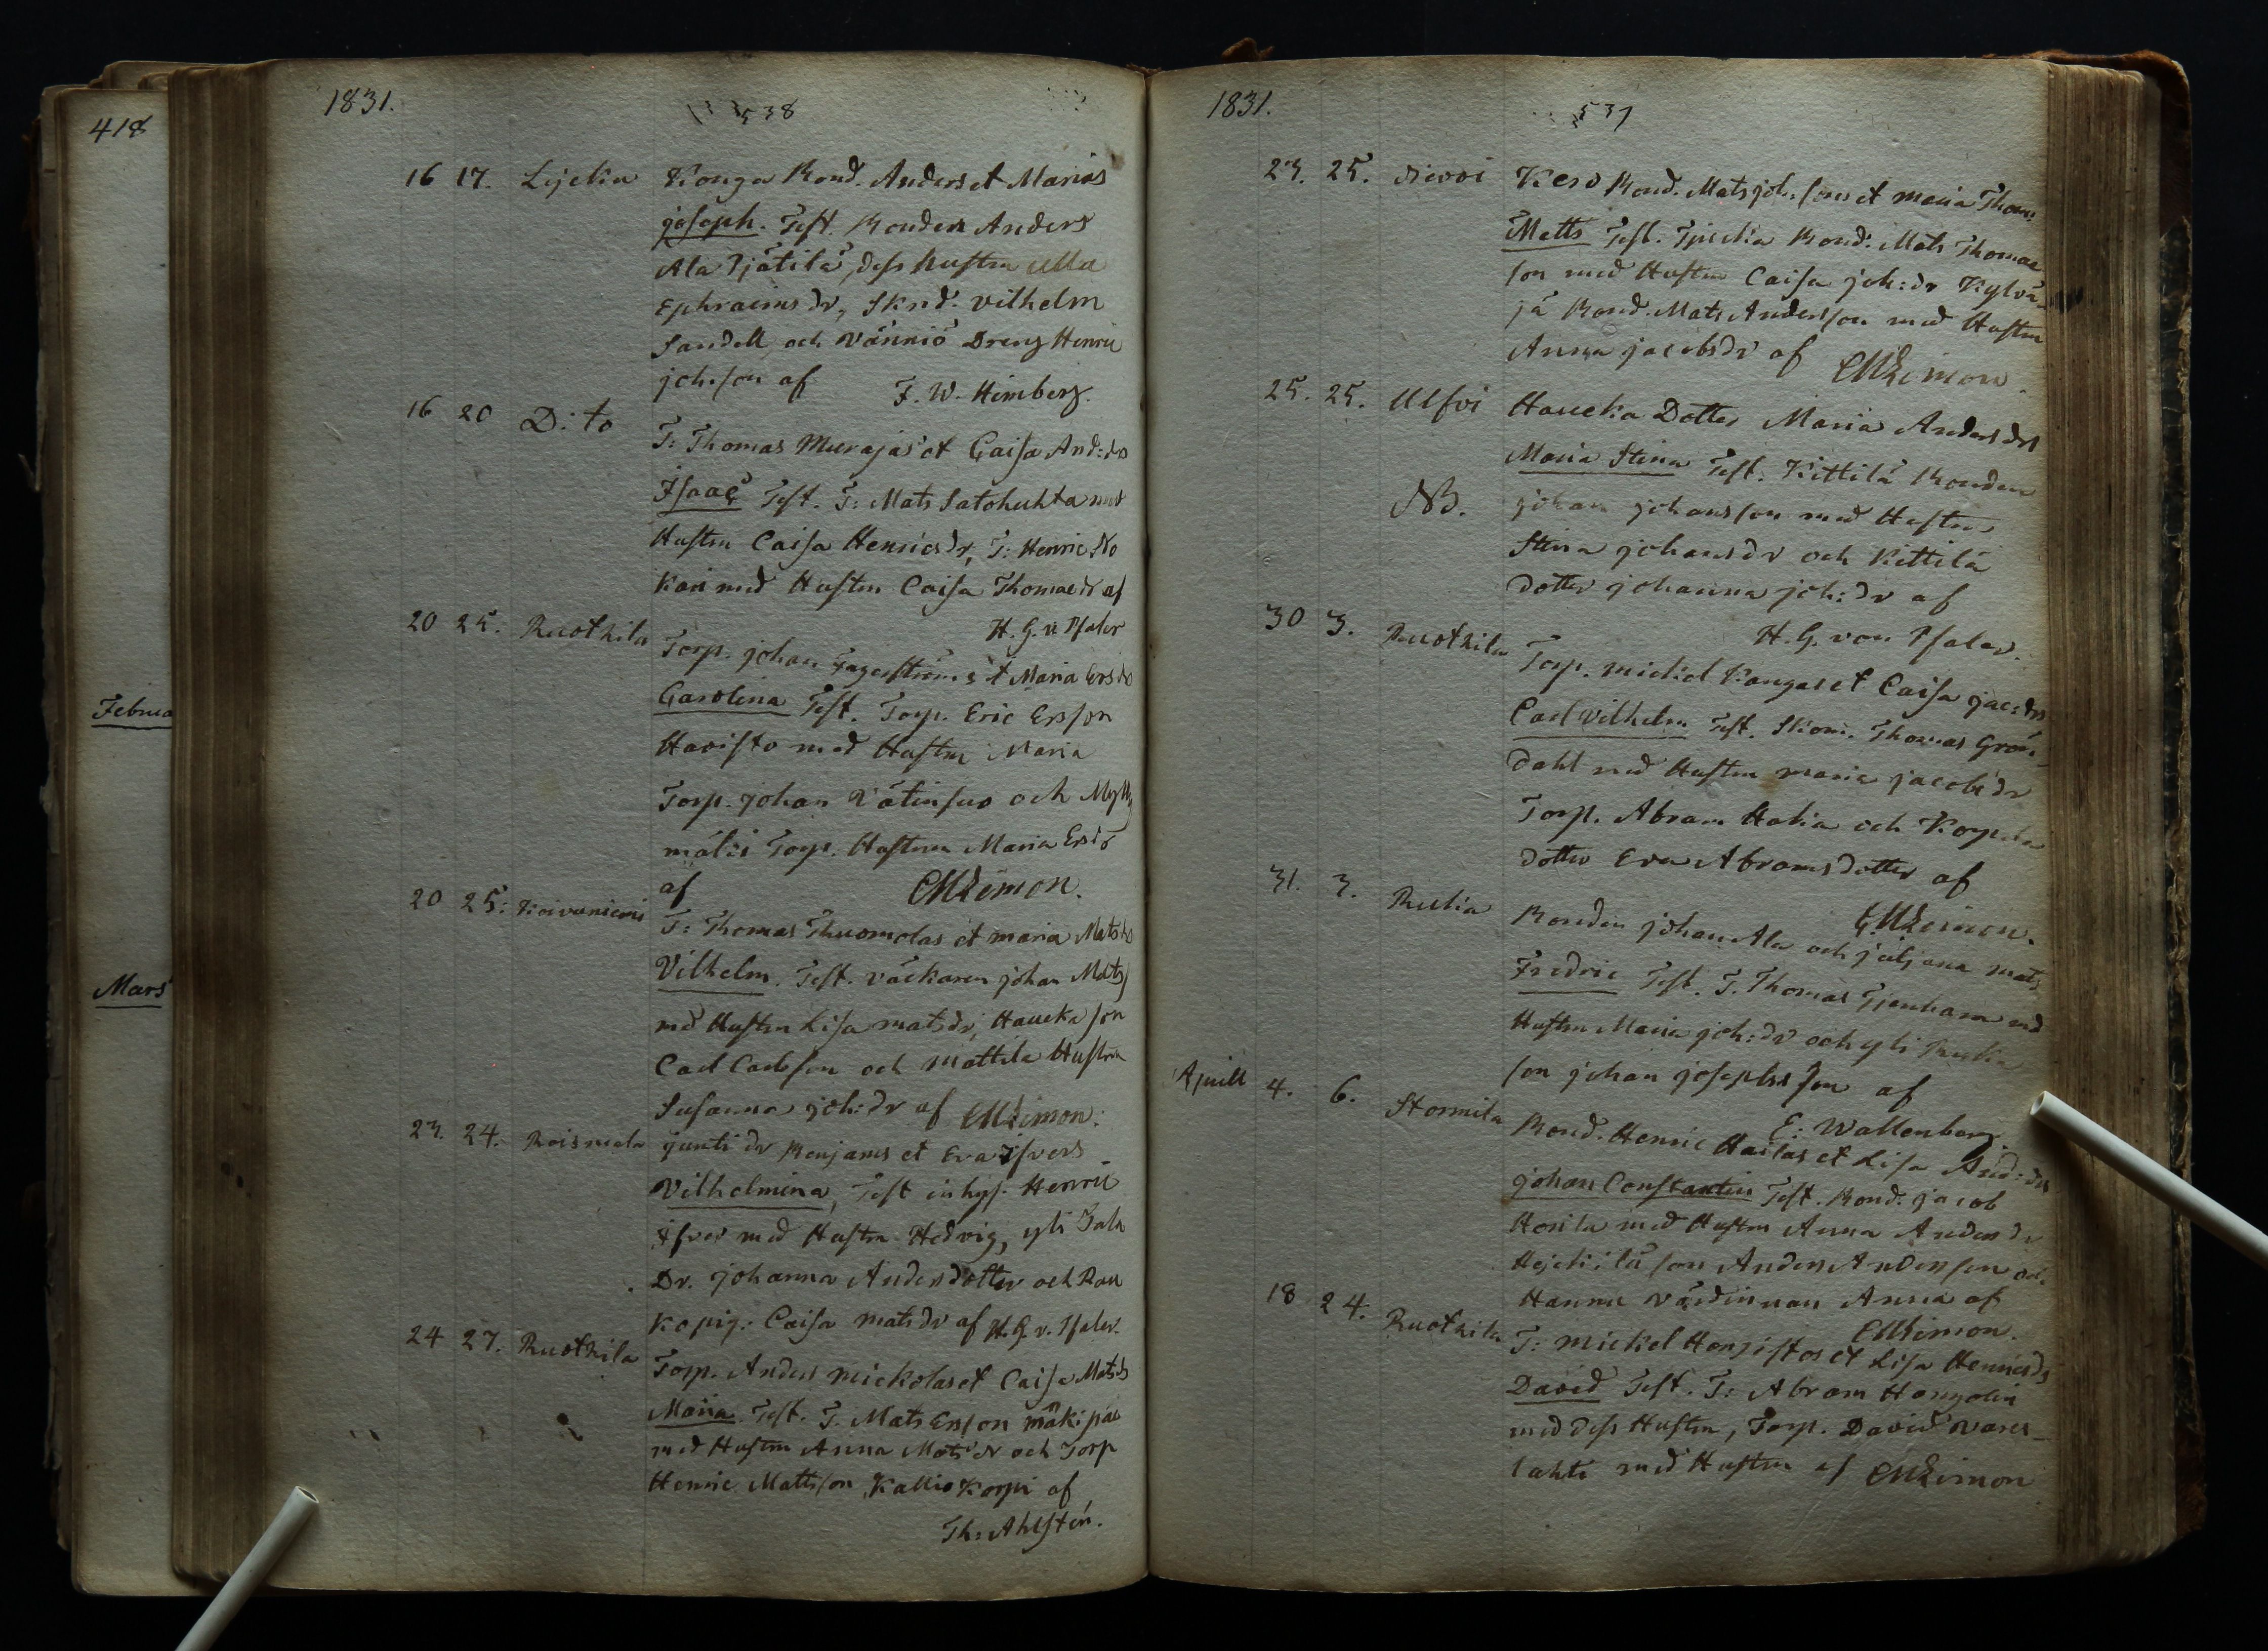 418
Februa
Mars
1831.
538
16 17. Lejekia Konga Bond. Anders et Marias
Joseph. Test. Bonden Anders
Ala Pjätilä, dess Hustru Ulla
Ephraimsdr, Skrd. Vilhelm
Sandell, och Vänniö Dreng Henric
johsson af F. W. Himberg.
16 20 D:to T: Thomas Murajas et Caisa And:dr
Isaac Test. T: Mats Satohuhta med
Hustru Caisa Henricsdr, T: Henric No
kari med Hustru Caisa Thomaedr af
H. G. v. Pfaler
20 25. Ruotzila Torp. johan Fagerströms et Maria Ersdr
Carolina Test. Torp. Eric Ersson
Havisto med Hustru Maria
Torp. johan Vätinsuo och Mylly
mäkis Torp. Hustrun Maria Ersdr
af CMLimon.
20 25: Koivuniemi T: Thomas Thuomolas et maria Matsdr
Vilhelm. Test. väckaren johan Mats
med Hustru Lisa matsdr, Haucka son
Carl Carlsson och Mattila Hustru
Susanna joh:dr af CMLimon.
23. 24. Roismala junti dr Benjams et Eva Ifvers
Vilhelmina, Test inhys. Henric
Ifver med Hustru Hedvig, yli Jala
Dr. johanna Andersdotter och Rau
ko pig. Caisa matsdr af H. G. v. Pfaler.
24 27. Ruotzila Torp. Anders Mickolas et Caisa Matsdr
Maria. Test. T. Mats Ersson mäkipää
med Hustru Anna Matsdr och Torp
Henric Mattsson Kallio Korpi af
Th: Ahlstén.
1831.
537
23. 25. Kero Bond. Mats joh.sons et maria Thom.
Matts Test. Bond. Mats Thomae
son med Hustru Caisa joh:dr Kylvä
jä Bond. Mats Andersson med Hustru
Anna jacobsdr af CMLimon.
25. 25. Ulfvi Haucka Dotter Maria Andersdrs
Maria Stina Test. Kittilä Bonden
NB. johan johansson med Hustru
Stina johansdr och Kittilä
dotter johanna joh:dr af
H. G. von Pfaler.
30 3. Ruotzila Torp. mickel Kangas et Caisa jac:drs
Carl Vilhelm Test. Skom. Thomas Grön
dahl med Hustru maria jacobsdr
Torp. Abram Hakia och Korpela
dotter Eva Abramsdotter af
CMLimon.
31. 3. Rutia Bonden johan Ala och juljana mats
Fredric Test. T. Thomas Tjenhara med
Hustru Maria joh:dr och yli Rutia
son johan josephsson af
E: Wallenberg.
Aprill 4. 6. Stormila Bond. Henric Hailas et Lisa And:drs
johan Constantin Test. Bond. jacob
Horila med Hustru Anna Andersdr
Hejckilä son Anders Andersson och
Hannu värdinnan Anna af
CMLimon.
18 24. Ruotzila T: mickel Hongistos et Lisa Henricsdr
David Test. T: Abram Hongolin
med dess Hustru, Torp. David vares
lahti med Hustru af CMLimon